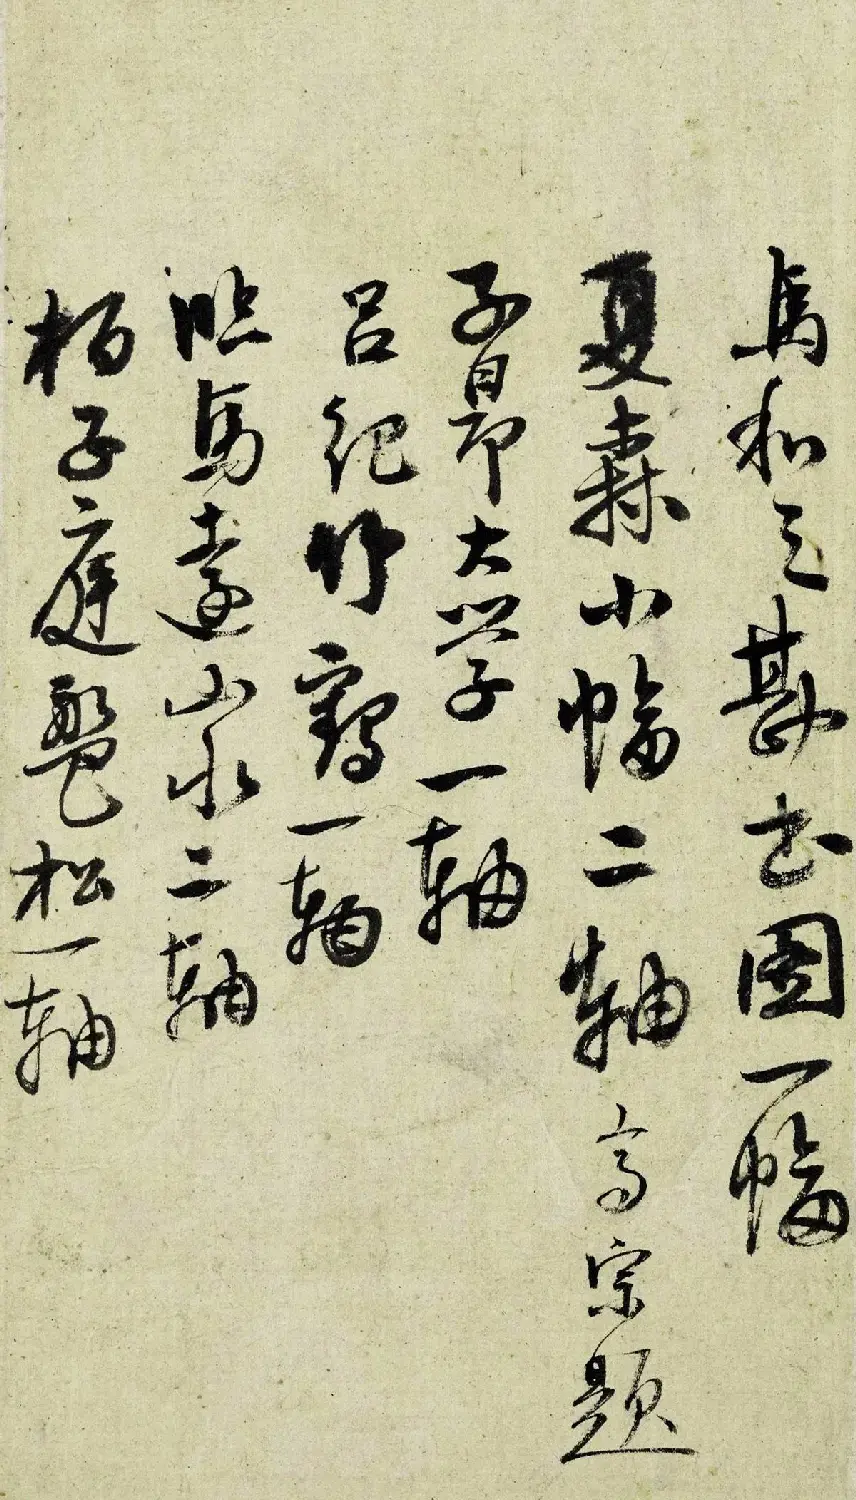 馬和之勘書圖一幅
夏森小幅二軸高宗題
子昂大學一軸
呂紀竹鶴一軸
臨馬遠山水二軸
栢子庭盤松一軸